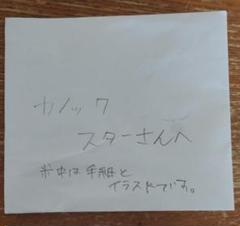 カノック
スターさんへ
※中は手紙と
イラストです。